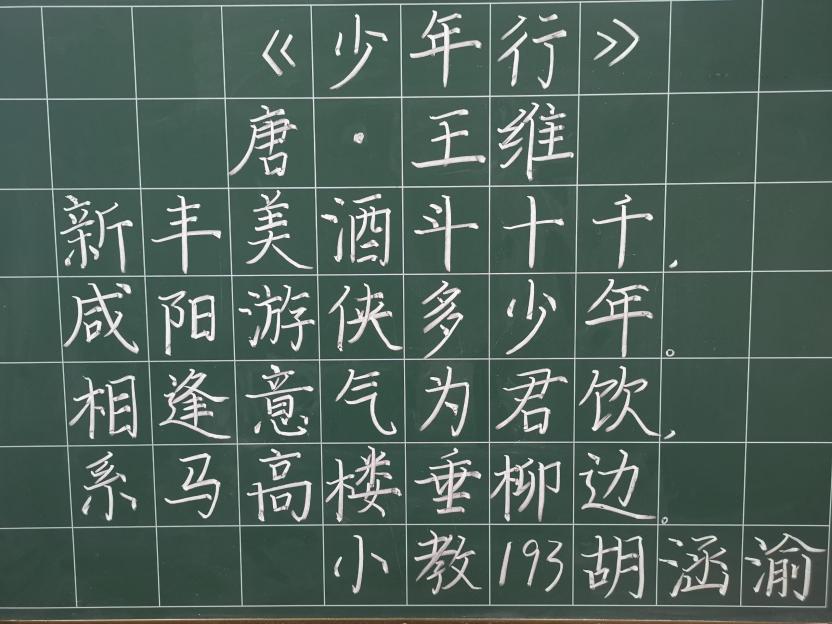 《少年行》
唐·王维
新丰美酒斗十千,
咸阳游侠多少年。
相逢意气为君饮,
系马高楼垂柳边。
小教193胡涵渝